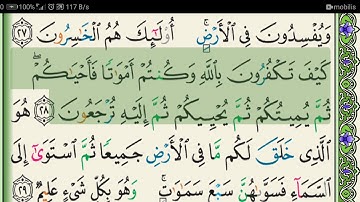 100% 117 B/s mobilis
وَيُفْسِدُونَ فِى ٱلْأَرْضِ ۚ أُو۟لَـٰٓئِكَ هُمُ ٱلْخَـٰسِرُونَ ٢٧
كَيْفَ تَكْفُرُونَ بِٱللَّهِ وَكُنتُمْ أَمْوَٰتًا فَأَحْيَـٰكُمْ ۖ
ثُمَّ يُمِيتُكُمْ ثُمَّ يُحْيِيكُمْ ثُمَّ إِلَيْهِ تُرْجَعُونَ ٢٨ هُوَ
ٱلَّذِى خَلَقَ لَكُم مَّا فِى ٱلْأَرْضِ جَمِيعًا ثُمَّ ٱسْتَوَىٰٓ إِلَى
ٱلسَّمَآءِ فَسَوَّىٰهُنَّ سَبْعَ سَمَـٰوَٰتٍ ۚ وَهُوَ بِكُلِّ شَىْءٍ عَلِيمٌ ٢٩